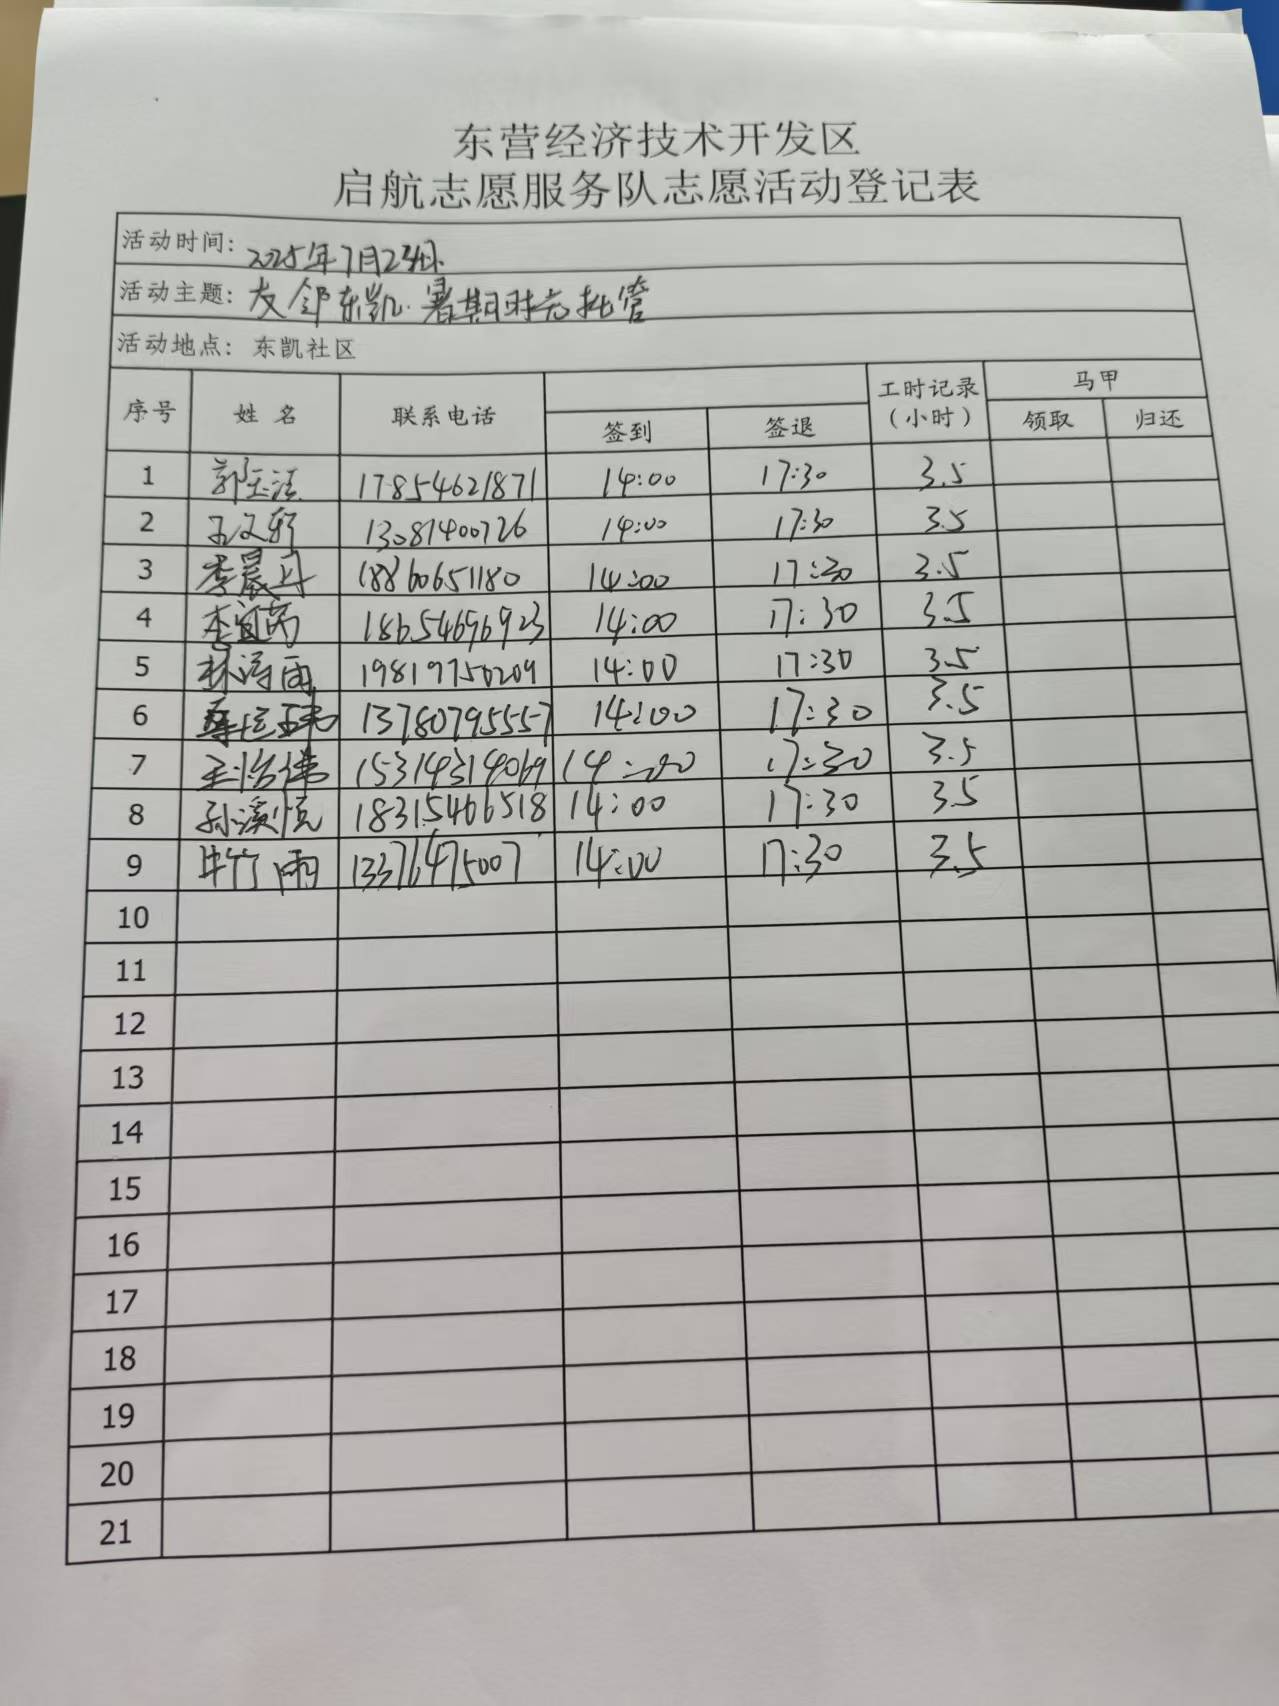 东营经济技术开发区
启航志愿服务队志愿活动登记表
活动时间: 2025年7月23日.
活动主题: 友邻东凯·暑期时光托管
活动地点: 东凯社区
序号 姓名 联系电话 签到 签退 工时记录(小时) 马甲 领取 归还
1 郭玉洁 17854621871 14:00 17:30 3.5
2 孟文轩 13081400726 14:00 17:30 3.5
3 李晨丹 18860651180 14:00 17:30 3.5
4 李宜芮 18654696923 14:00 17:30 3.5
5 林海雨 19819750209 14:00 17:30 3.5
6 13780795557 14:00 17:30 3.5
7 15314314069 14:00 17:30 3.5
8 孙溪悦 18315466518 14:00 17:30 3.5
9 牛竹雨 13376475007 14:00 17:30 3.5
10
11
12
13
14
15
16
17
18
19
20
21